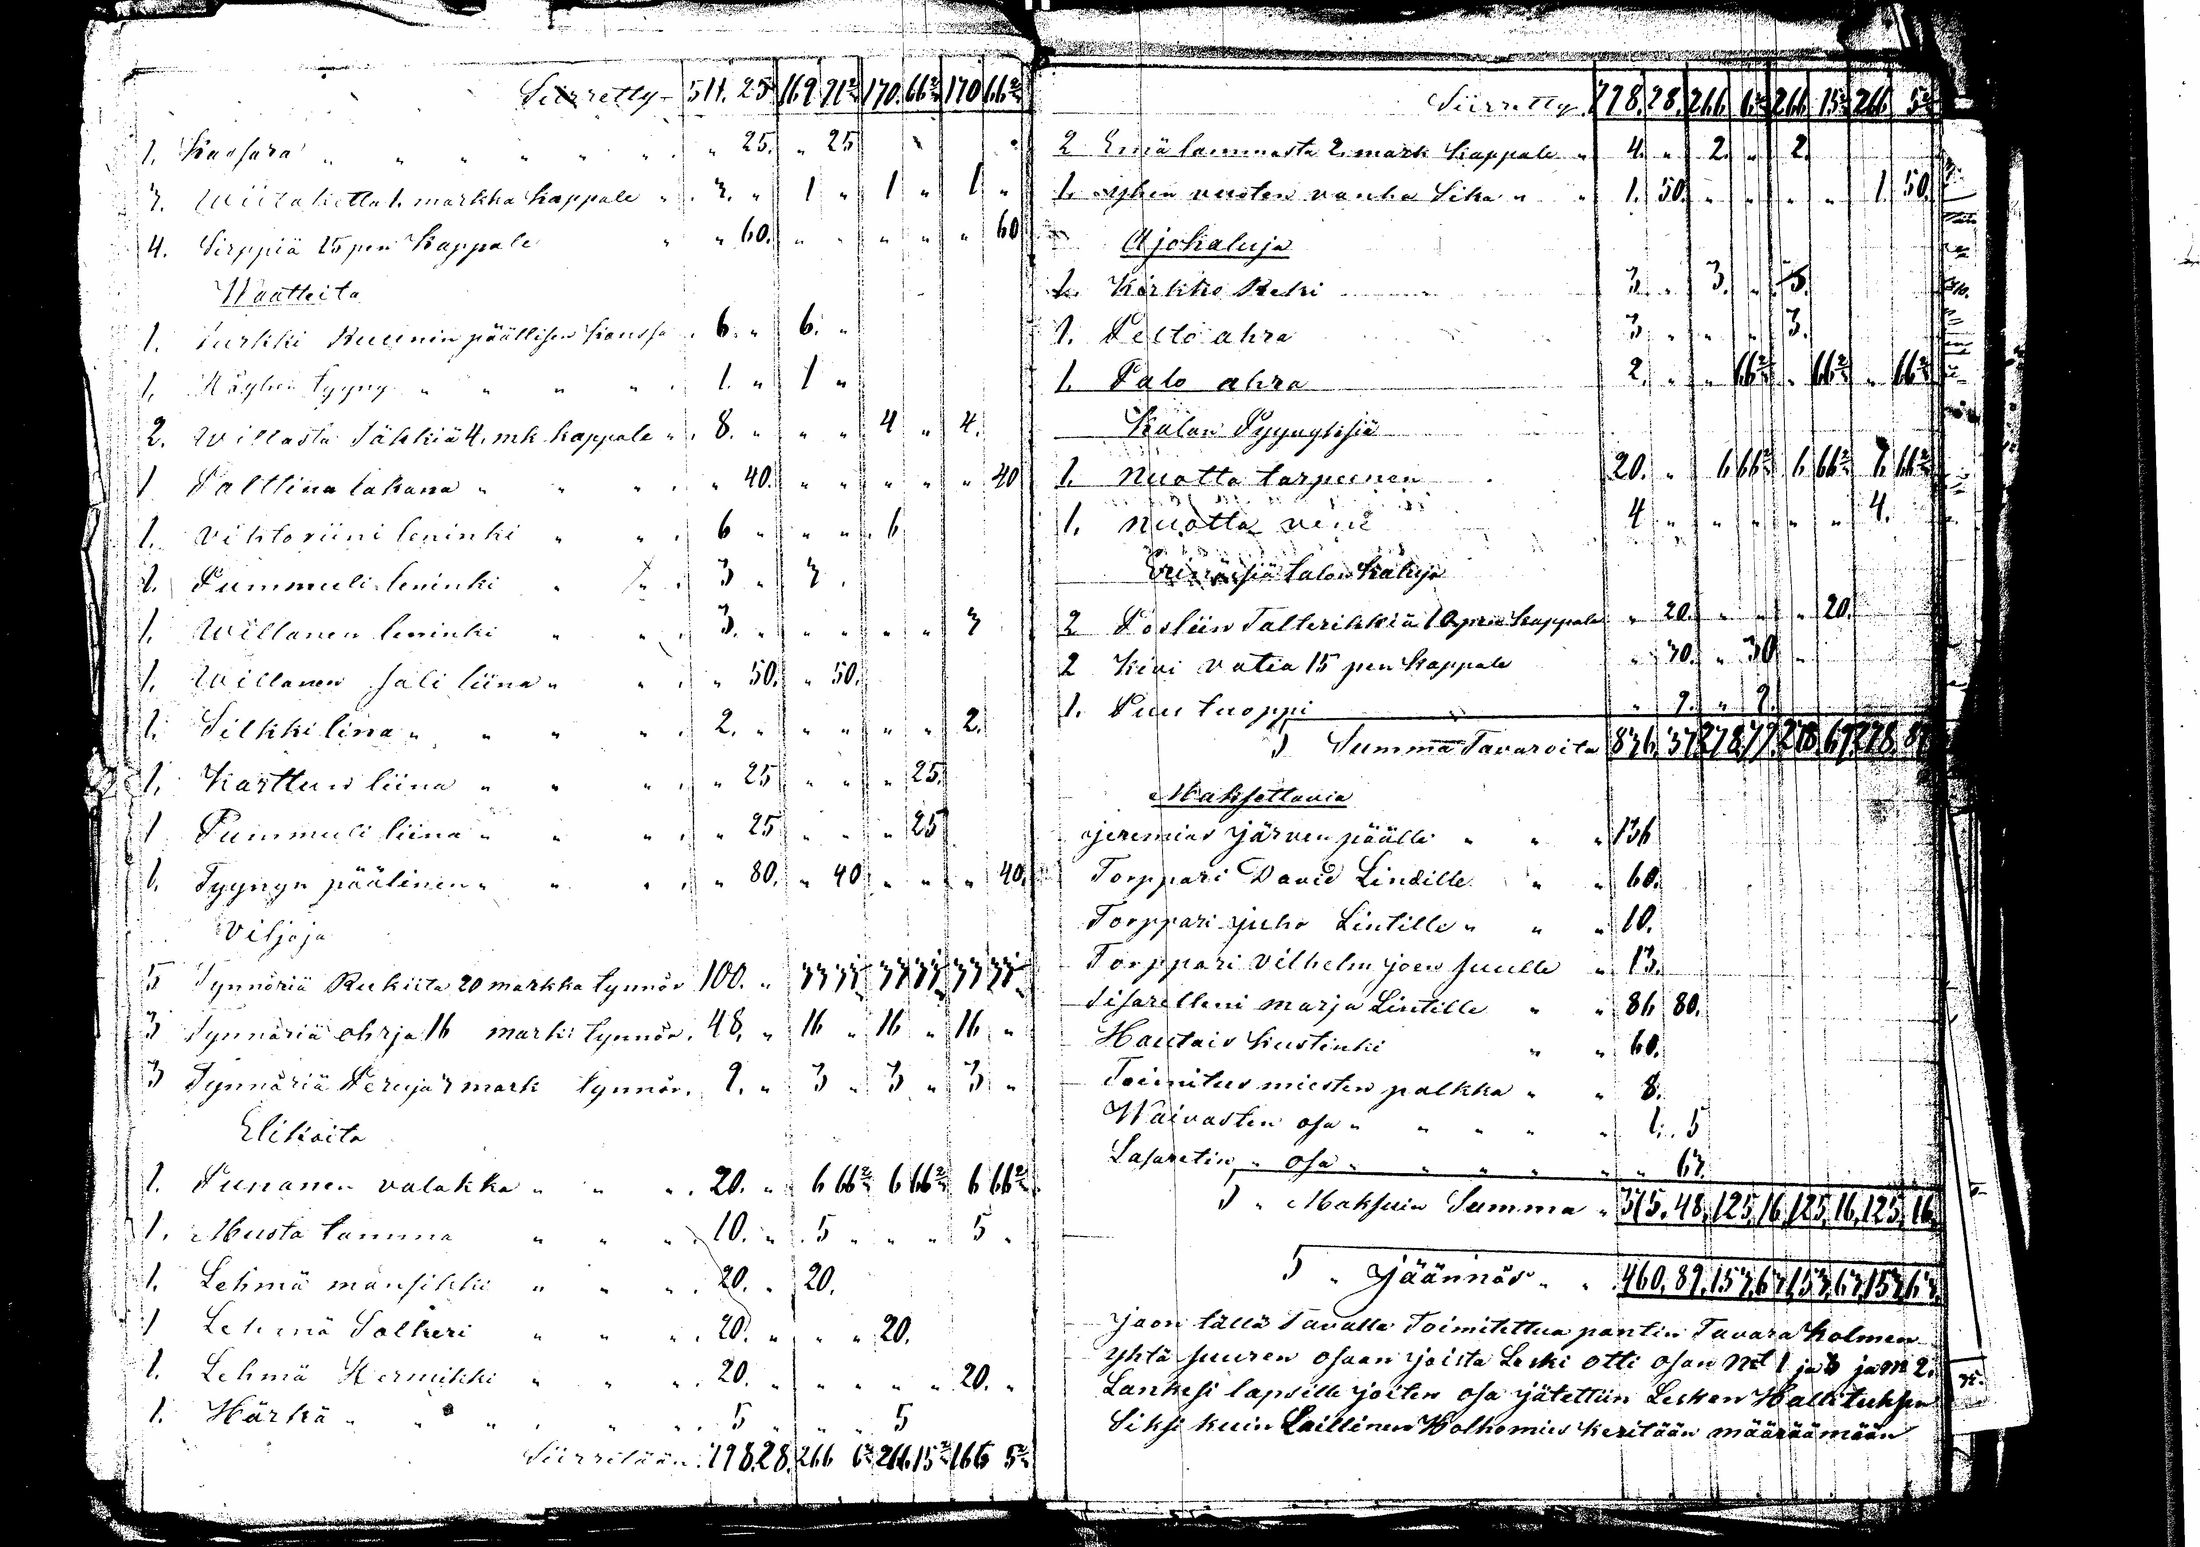 Siirretty 511. 25 169 71 2/3 170. 66 2/3 170 66 2/3
1. Kassara " " " " " " " 25. " 25
3. Wiitaketta 1. markka kappale " 3. " 1 " 1 " 1 "
4. Sirppiä 15 pen kappale " " 60. " " " " " 60
Waatteita
1. Turkki Ruunin päällisen kanssa 6. " 6. "
1. Köyhen tyyny " " " " 1. " 1 "
2. Willasta Säkkiä 4. mk kappale " 8. " " " 4 " 4.
1 Palttina lakana " " " " 40. " " " " " 40
1. Vihtoriini leninki " " 6 " " " 6
1. Pummuli leninki " " 3 " 3
1. Willanen leninki " " 3. " " " " " 3
1. Willanen sali liina " " " 50. " 50.
1. Silkki lina " " " " 2. " " " " " 2.
1. Karttun liina " " " " 25 " " " 25.
1 Pummuli liina " " " " 25 " " " 25
1. Tyynyn päälinen " " " " 80. " 40 " " " 40.
Viljoja
5 Tynnöriä Rukiita 20 markka tynnör 100. " 33 33 33 33 33 33
3 Tynnäriä ohrja 16 mark: tynnör. 48. " 16 " 16 " 16 "
3 Tynnäriä Peruja 3 mark tynnör. 9. " 3 " 3 " 3 "
Elikoita
1. Punanen valakka " " " 20. " 6 66 2/3 6 66 2/3 6 66 2/3
1. Musta tamma " " " 10. " 5 " " " 5 "
1. Lehmä mansikki " " " 20. " 20.
1 Lehmä Solkeri " " " 20. " " " 20.
1. Lehmä Hermikki " " " 20. " " " " " 20. "
1. Härkä " " " " " 5 " " " 5
Siirretään 798. 28. 266 6 2/3 266 15 2/3 166 5 2/3
Siirretty 798. 28. 266 6 2/3 266 15 2/3 266 5 2/3
2 Emä lammasta 2. mark kappale " 4. " 2. " 2.
1. yhen vuoten vanha Sika " " 1. 50. " " " " 1. 50.
Ajokaluja
1. Kirkko Reki 3. " 3. "
1. Pelto ahra 3 " " " 3.
1. Palo ahra 2. " " 66 2/3 " 66 2/3 " 66 2/3
Kalan Pyynyksiä
1. Nuotta tarpeinen 20. " 6 66 2/3 6 66 2/3 6 66 2/3
1. Nuotta vene 4 " " " " " 4.
Erinäisiä talon kaluja
2 Posliin Talterikkiä 10 pen kappale " 20. " " " 20.
2 Kivi vatia 15 pen kappale " 30. " 30 "
1. Puu tuoppi " 9. " 9.
S Summa Tavaroita 836. 37. 278. 79. 278. 67.
Maksettavia
Jeremias Järvenpäälle " " " 136
Torppari David Lindille " " 60.
Torppari Juho Lintille " " " 10.
Torppari Vilhelm Joensuulle " 13.
Sisarelleni Marja Lintille " " 86 80.
Hautais kustinki " " 60.
Toimitus miesten palkka " " 8.
Waivasten osa " " " " " 1. 5
Lasaretin " osa " " " " " " 63.
S " Maksuin Summa " 375. 48. 125, 16, 125, 16, 125, 16
S " Jäännös " " 460. 89, 153, 63, 153, 63, 153, 63.
Jaon tällä Tavalla Toimitettua pantiin Tavara kolmen
yhtä suuren osaan joista Leski otti osan No 1 ja 3 ja No 2.
Lankesi lapsille joiten osa jätettiin Lesken Hallituksen
Siksi kuin Laillinen Holhomies keritään määräämään